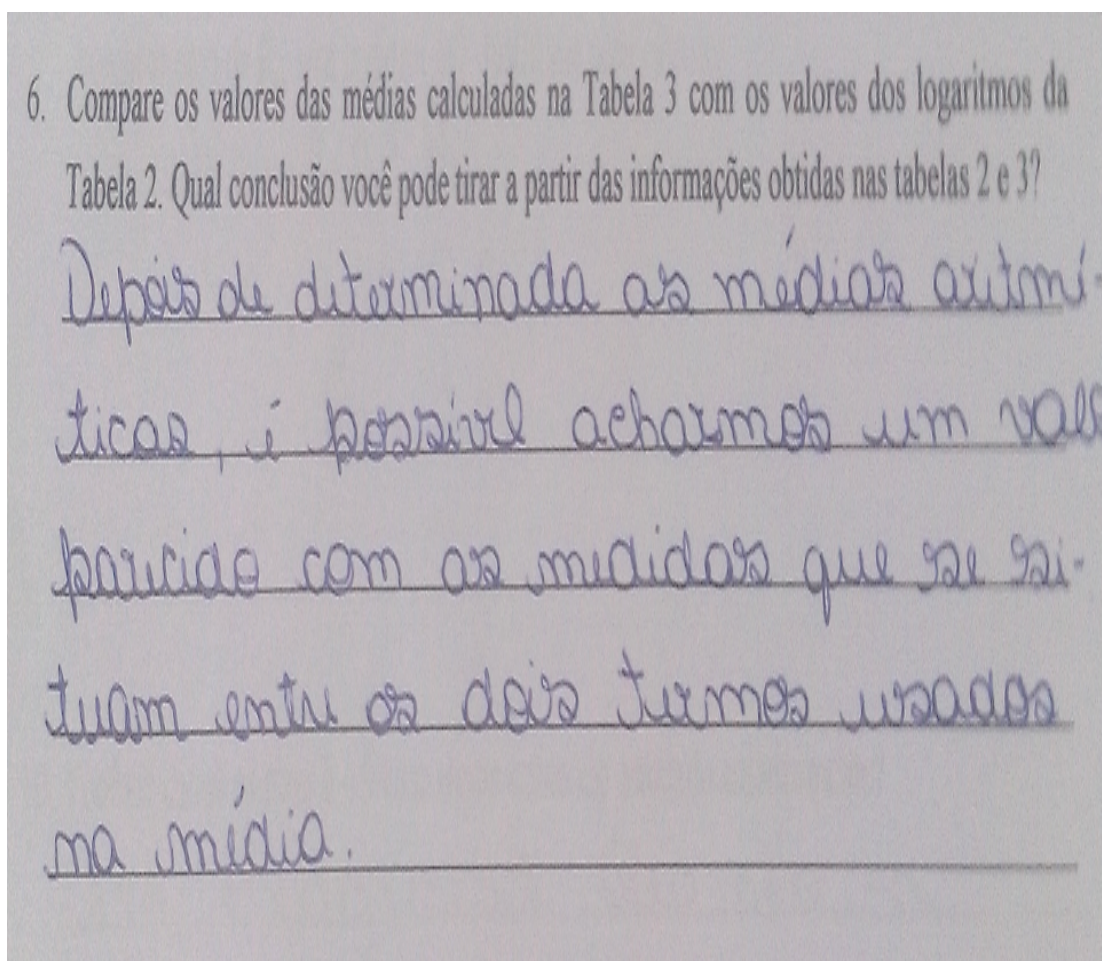 6. Compare os valores das médias calculadas na Tabela 3 com os valores dos logaritmos da
Tabela 2. Qual conclusão você pode tirar a partir das informações obtidas nas tabelas 2 e 3?
Depois de determinada as médias aritmé-
ticas, é possível acharmos um valo
parecido com as medidas que se si-
tuam entre os dois termos usados
na média.